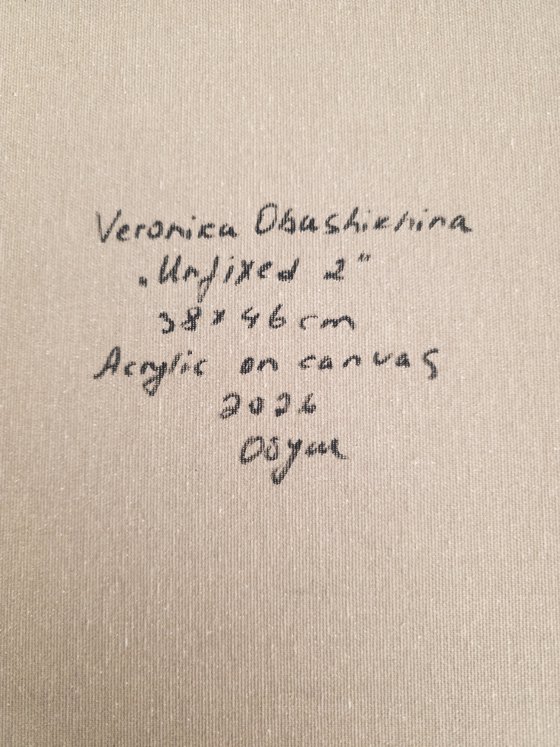 Veronika Obushikhina
„Unfixed 2"
38 x 46 cm
Acrylic on canvas
2026